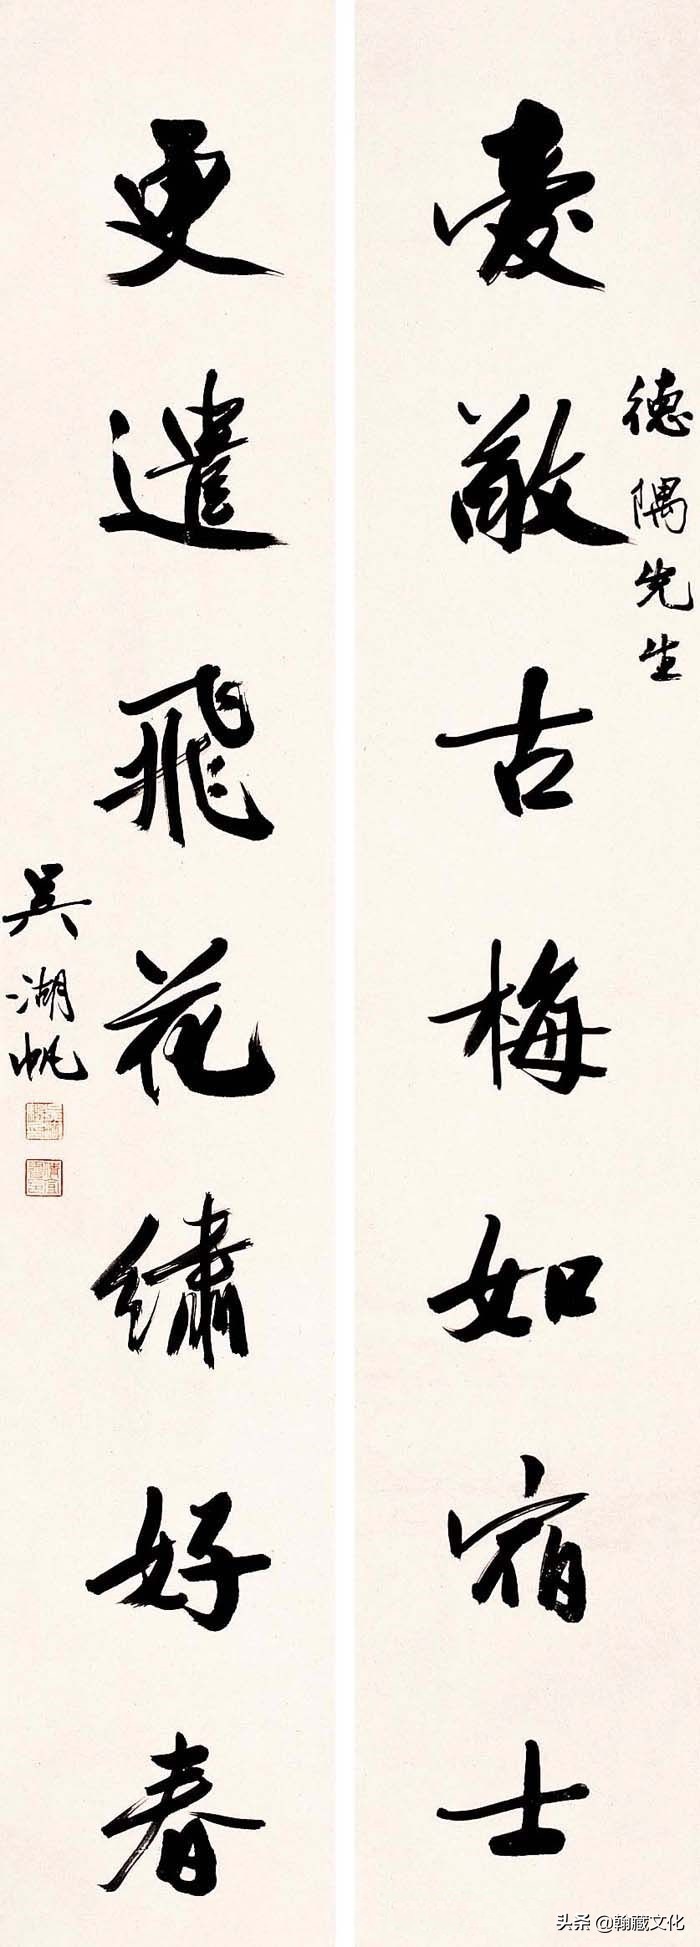 愛敬古梅如宿士
德隅先生
更遣飛花繡好春
吳湖帆
头条 @翰藏文化